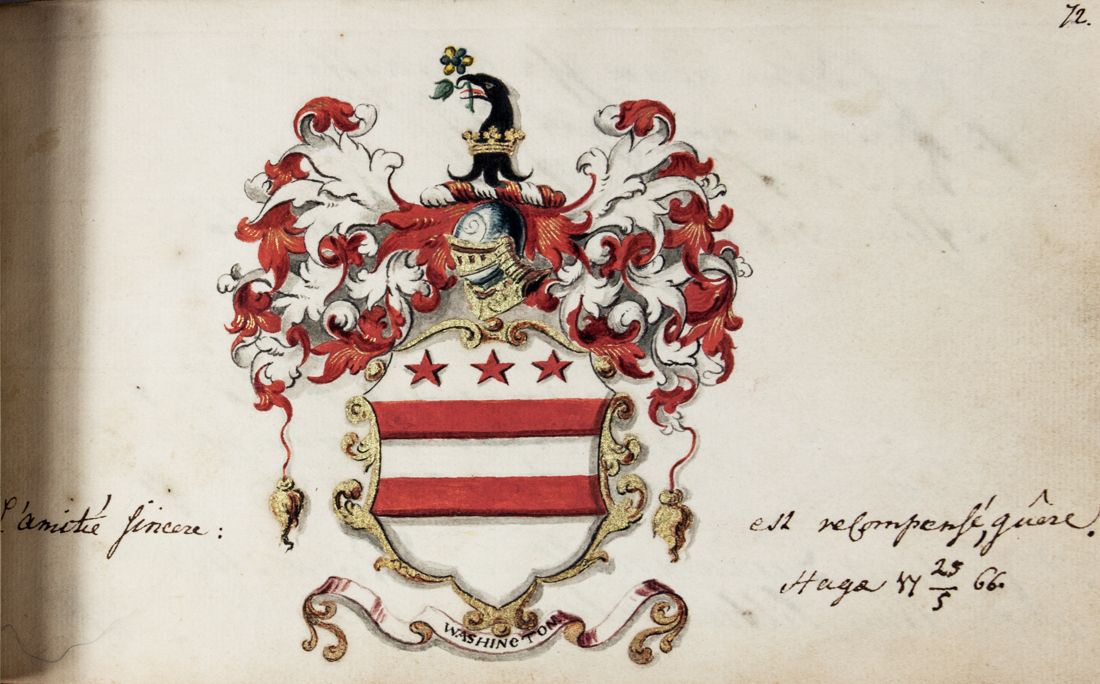 72.
L'amitié sincere:
est recompensé, guêre.
Haga 17 25/5 66.
WASHINGTON